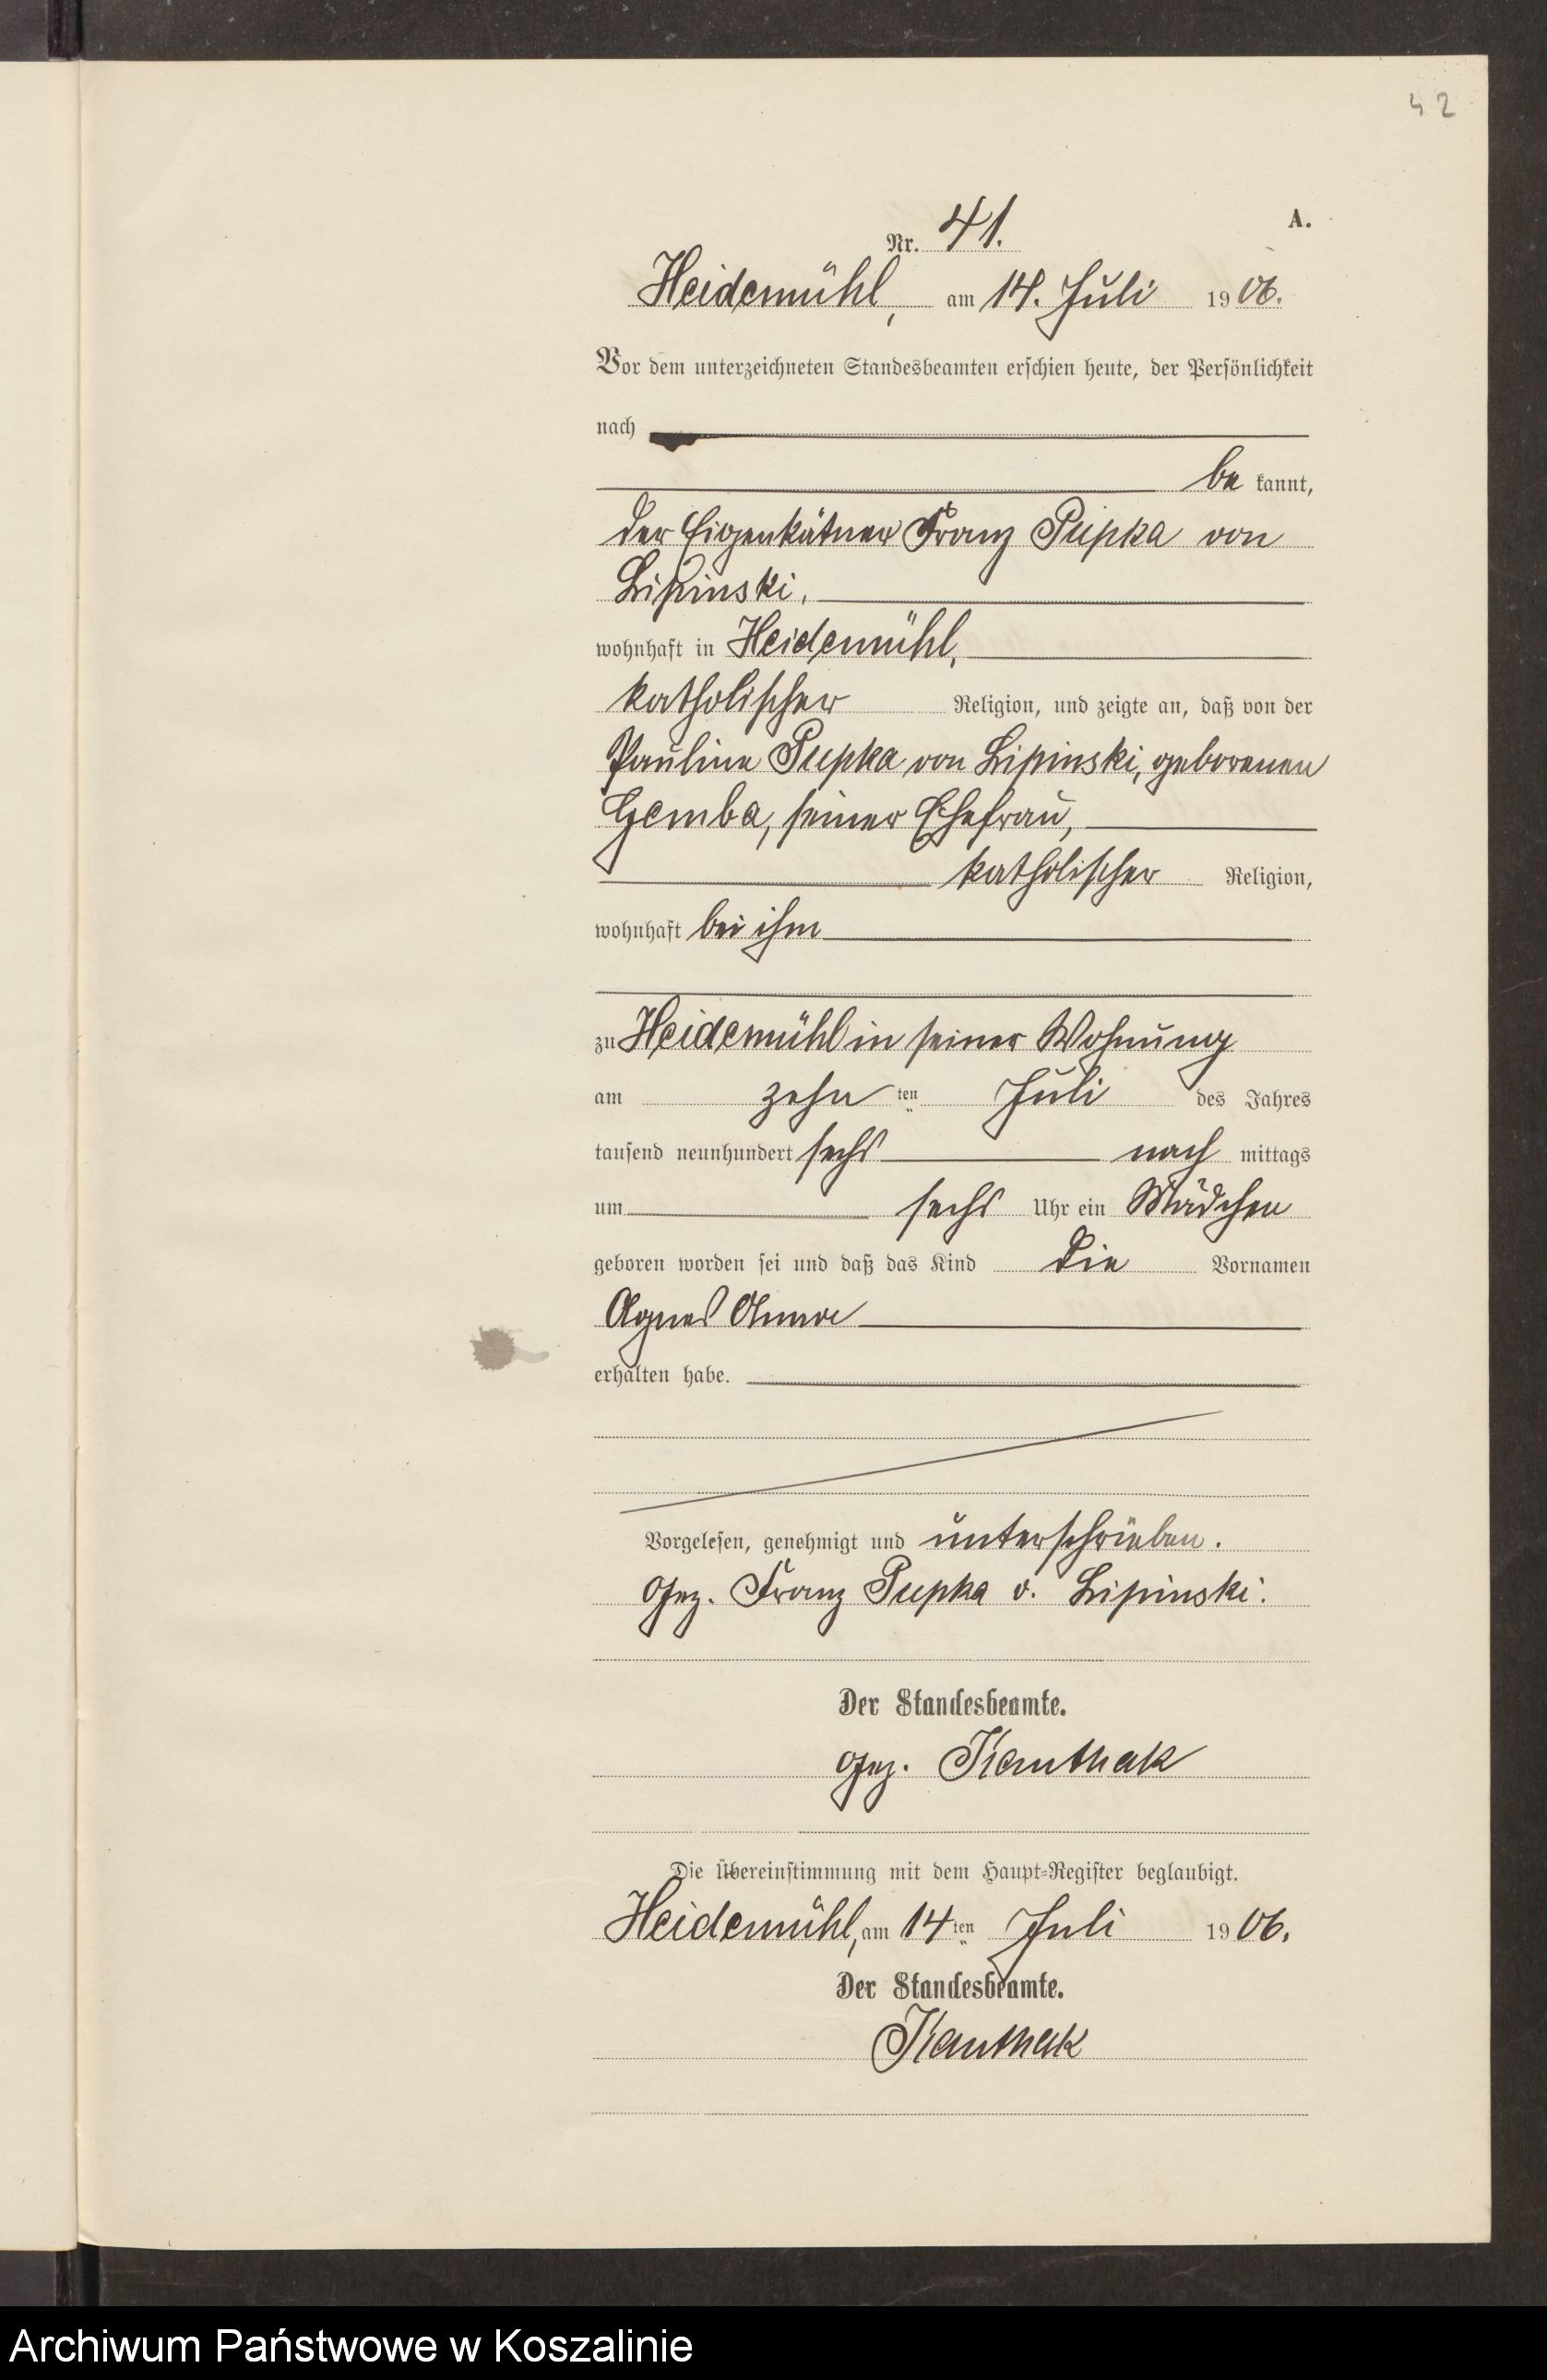 42
A.
Nr. 41.
Heidemühl, am 14. Juli 1906.
Vor dem unterzeichneten Standesbeamten erschien heute, der Persönlichkeit
nach
be kannt,
der Eigenkätner Franz Pupka von
Lipinski,
wohnhaft in Heidemühl,
katholischer Religion, und zeigte an, daß von der
Pauline Pupka von Lipinski, geborenen
Gemba, seiner Ehefrau,
katholischer Religion,
wohnhaft bei ihm
zu Heidemühl in seiner Wohnung
am zehn ten Juli des Jahres
tausend neunhundert sechs nach mittags
um sechs Uhr ein Mädchen
geboren worden sei und daß das Kind die Vornamen
Agnes Anna
erhalten habe.
Vorgelesen, genehmigt und unterschrieben.
Gez. Franz Pupka v. Lipinski.
Der Standesbeamte.
Gez. Kauthak
Die Übereinstimmung mit dem Haupt=Register beglaubigt.
Heidemühl, am 14 ten Juli 1906.
Der Standesbeamte.
Kauthak
Archiwum Państwowe w Koszalinie